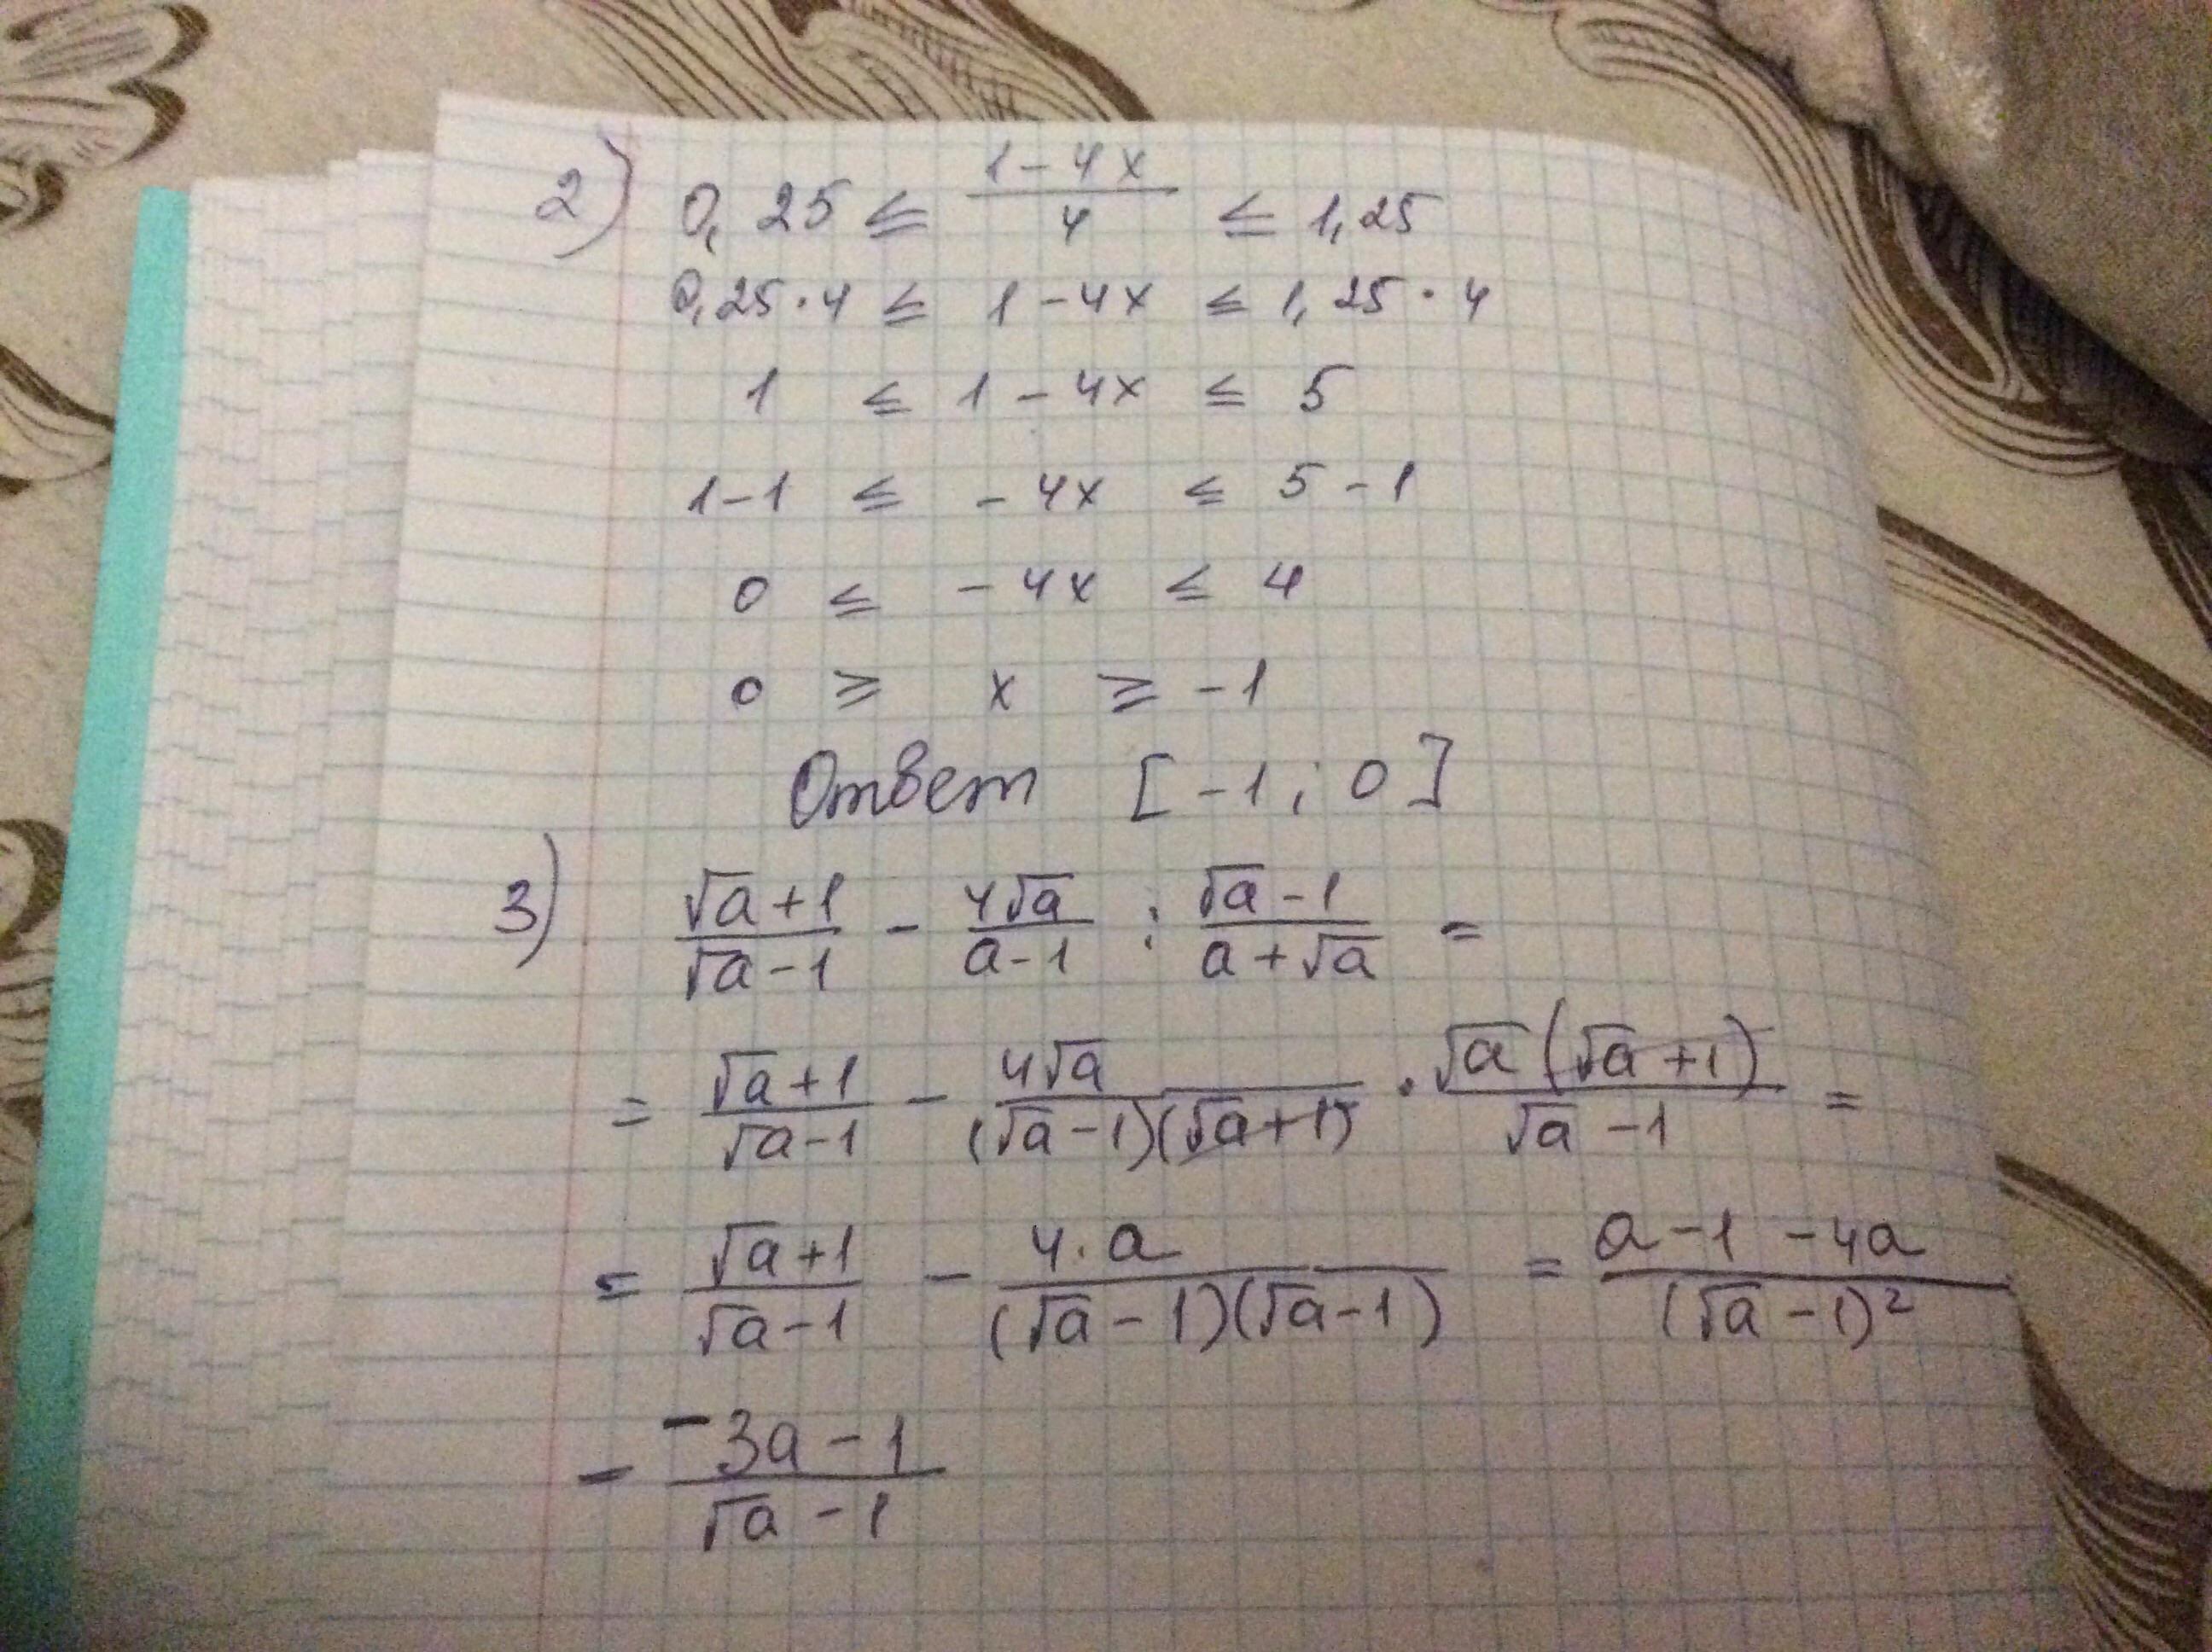 2) 0,25 ≤ (1-4x)/4 ≤ 1,25
0,25·4 ≤ 1-4x ≤ 1,25·4
1 ≤ 1-4x ≤ 5
1-1 ≤ -4x ≤ 5-1
0 ≤ -4x ≤ 4
0 ≥ x ≥ -1
Ответ [-1; 0]
3) (√a+1)/(√a-1) - 4√a/(a-1) : (√a-1)/(a+√a) =
= (√a+1)/(√a-1) - 4√a/((√a-1)(√a+1)) · √a(√a+1)/(√a-1) =
= (√a+1)/(√a-1) - 4·a/((√a-1)(√a-1)) = (a-1-4a)/(√a-1)²
= (-3a-1)/(√a-1)